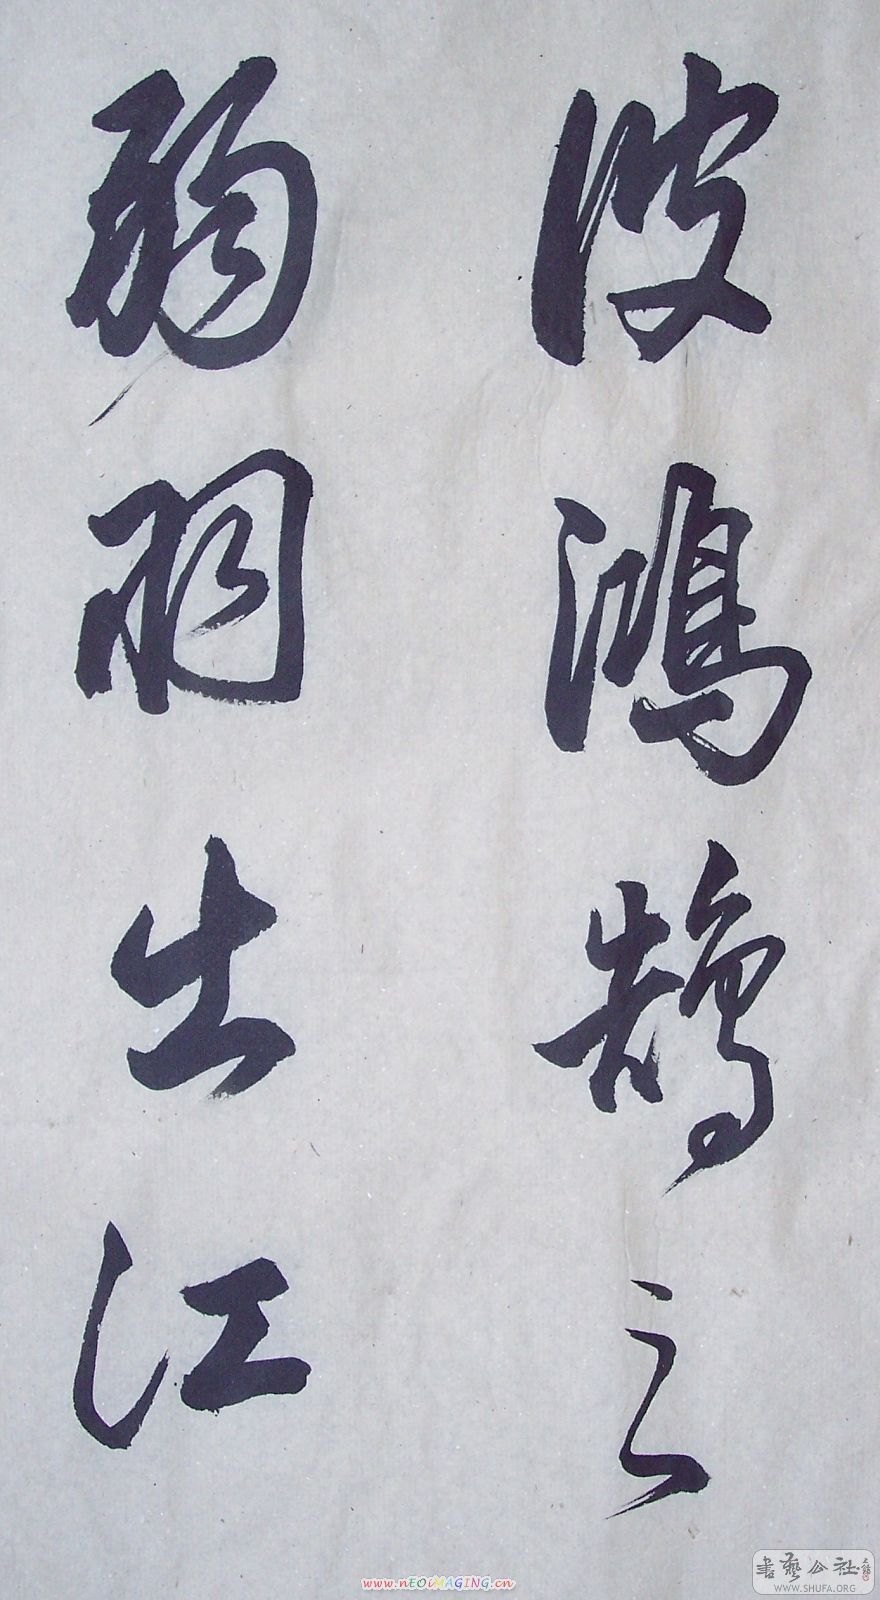 波鴻鵠之
弱羽出江
www.nEOiMAGING.cn
書藝公社
WWW.SHUFA.ORG